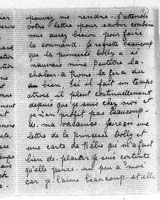 pouvez me rendre. J'attends
votre lettre pour savoir combien
vous aurez besoin pour faire
la commande. Je regrette beaucoup
que la princesse Dolly a si
mauvaise mine peut-être la
chaleur à Rome fait
bien. Ici il fait un temps
atroce il pleut continuellement
depuis que je suis chez moi et
je n'en profite pas beaucoup
de ma J'ai reçu une
lettre de la princesse Dolly et
une carte de qui m'a fait
bien de plaisir je suis contente
qu'elle pense un peu à moi
car je l'aime beaucoup et elle